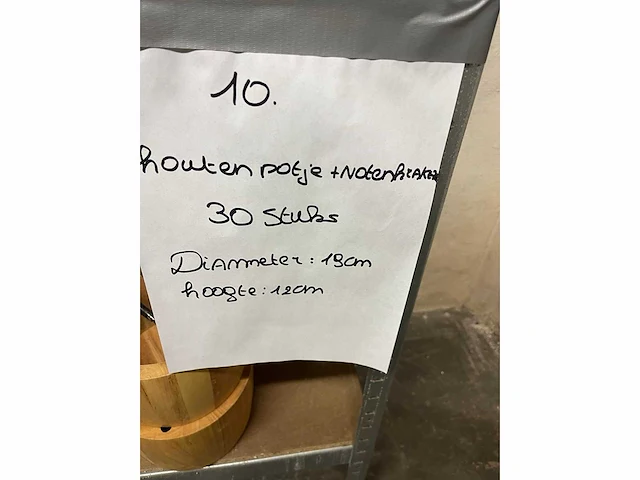 10.
houten potje + Notenkraker
30 Stuks
Diammeter : 19cm
hoogte : 12cm